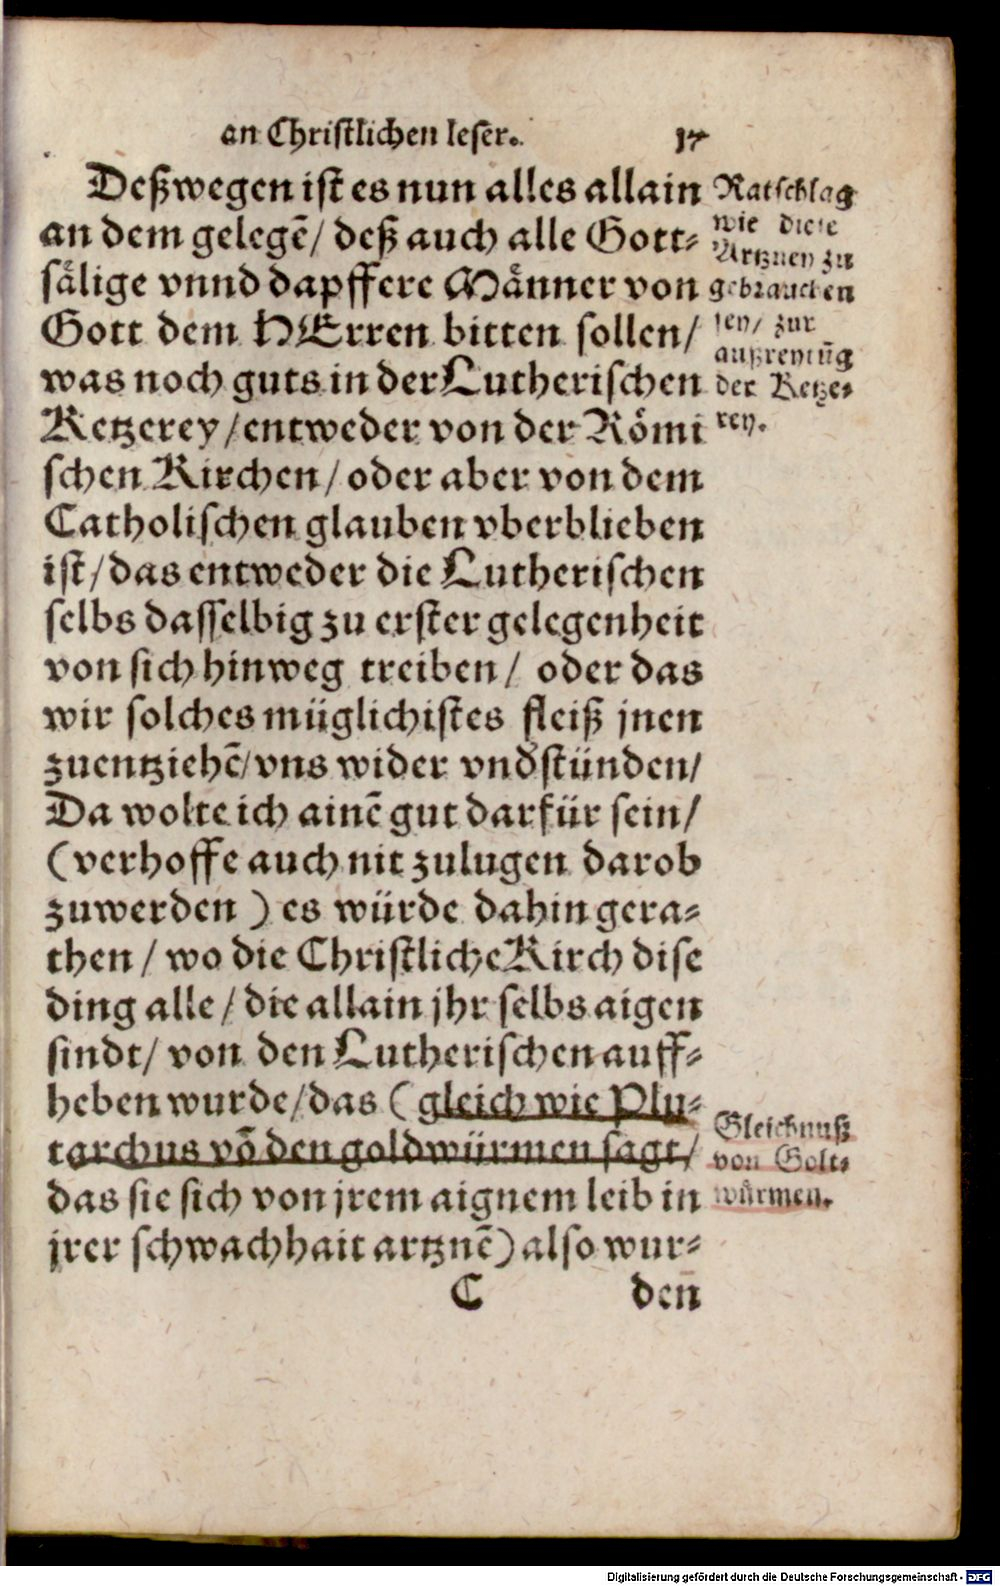 an Christlichen leser. 17
Deßwegen ist es nun alles allain
an dem gelegẽ/ deß auch alle Gott-
sälige vnnd dapffere Männer von
Gott dem HErren bitten sollen/
was noch guts in der Lutherischen
Ketzerey/entweder von der Römi
schen Kirchen/ oder aber von dem
Catholischen glauben vberblieben
ist/das entweder die Lutherischen
selbs dasselbig zu erster gelegenheit
von sich hinweg treiben/ oder das
wir solches müglichistes fleiß jnen
zuentziehẽ/vns wider vndstünden/
Da wolte ich ainẽ gut darfür sein/
(verhoffe auch nit zulugen darob
zuwerden) es würde dahin gera-
then/ wo die Christliche Kirch dise
ding alle/ die allain jhr selbs aigen
sindt/ von den Lutherischen auff-
heben wurde/das (gleich wie Plu-
tarchus võ den goldwürmen sagt/
das sie sich von jrem aignem leib in
jrer schwachhait artznẽ) also wur-
C den
Ratschlag
wie diese
Artzney zu
gebrauchen
sey/ zur
außreytũg
der Ketze-
rey.
Gleichnuß
von Golt-
würmen.
Digitalisierung gefördert durch die Deutsche Forschungsgemeinschaft - DFG